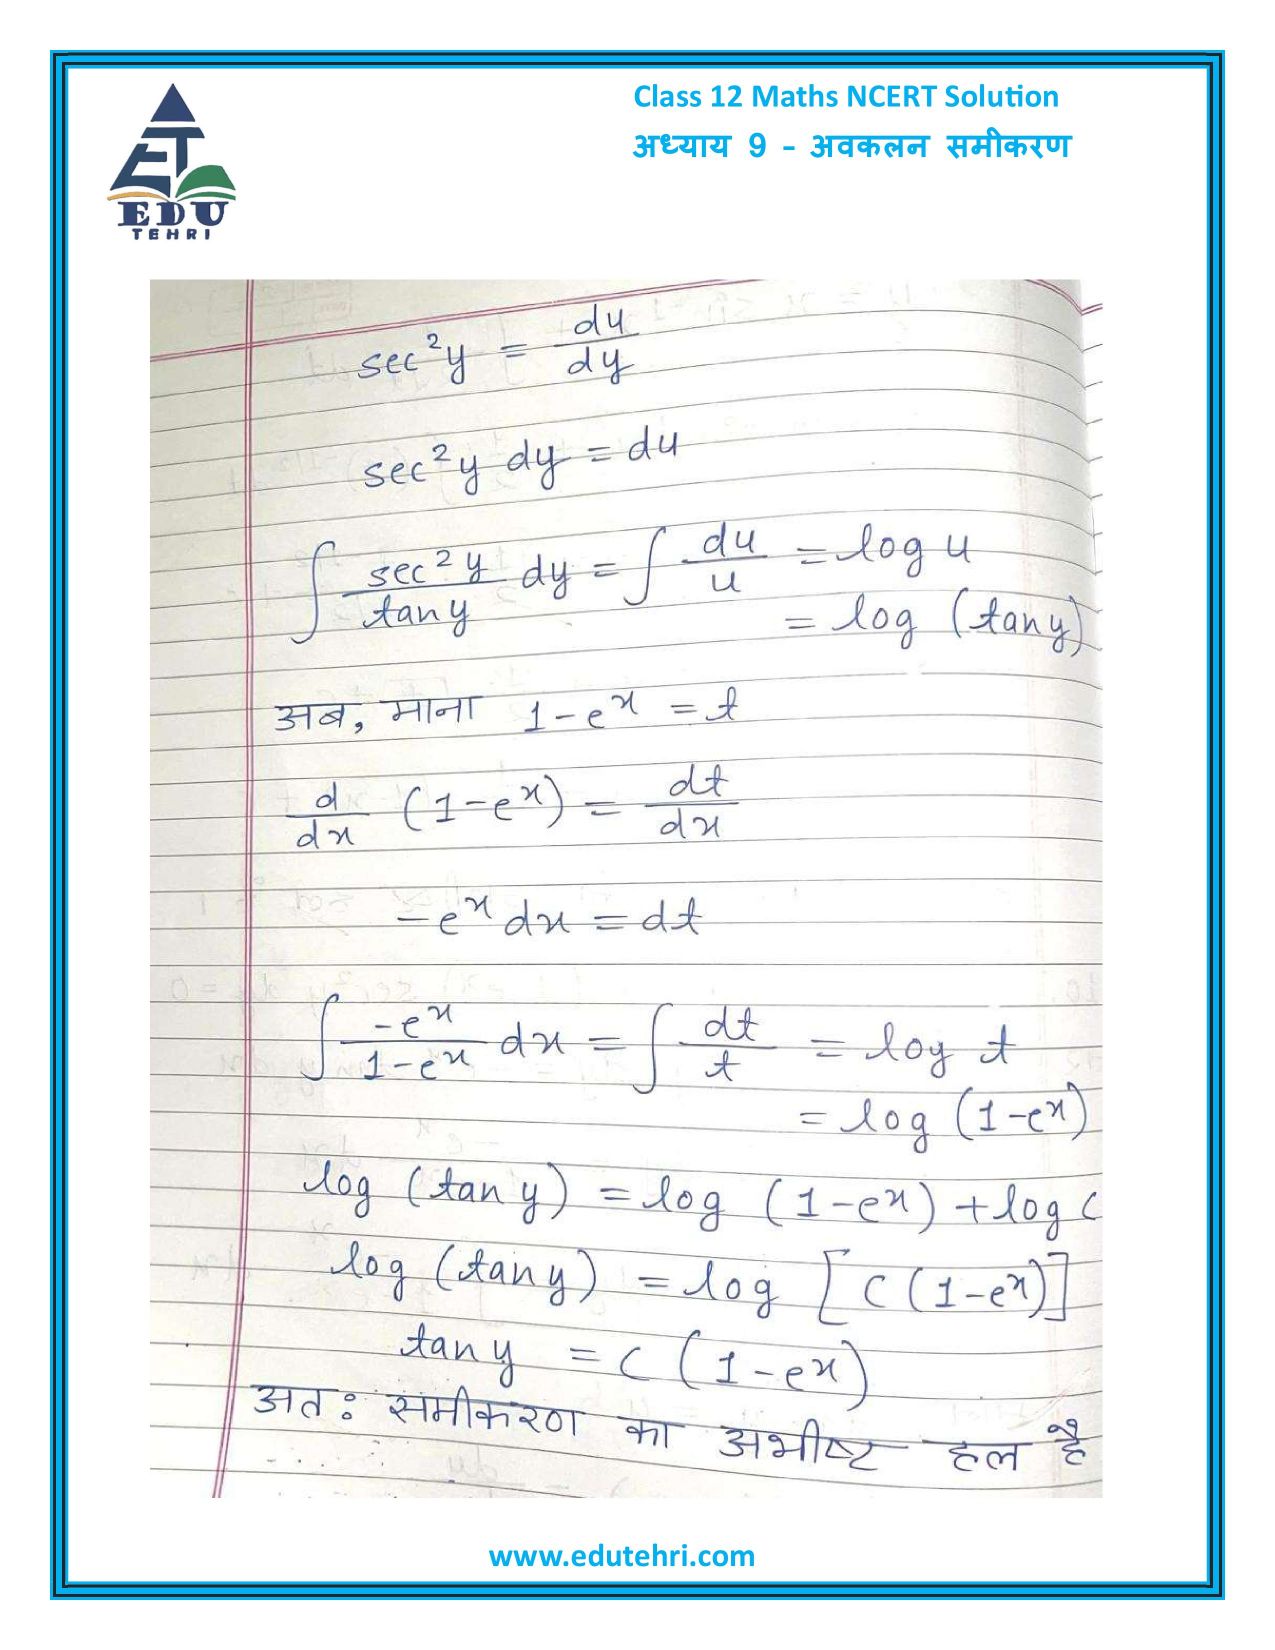 Class 12 Maths NCERT Solution
अध्याय 9 - अवकलन समीकरण
EDU
TEHRI
sec²y = du/dy
sec²y dy = du
∫ sec²y/tany dy = ∫ du/u = log u
= log (tany)
अब, माना 1-eˣ = t
d/dx (1-eˣ) = dt/dx
-eˣ dx = dt
∫ -eˣ/1-eˣ dx = ∫ dt/t = log t
= log (1-eˣ)
log (tan y) = log (1-eˣ) + log C
log (tany) = log [C(1-eˣ)]
tan y = C(1-eˣ)
अतः समीकरण का अभीष्ट हल है
www.edutehri.com